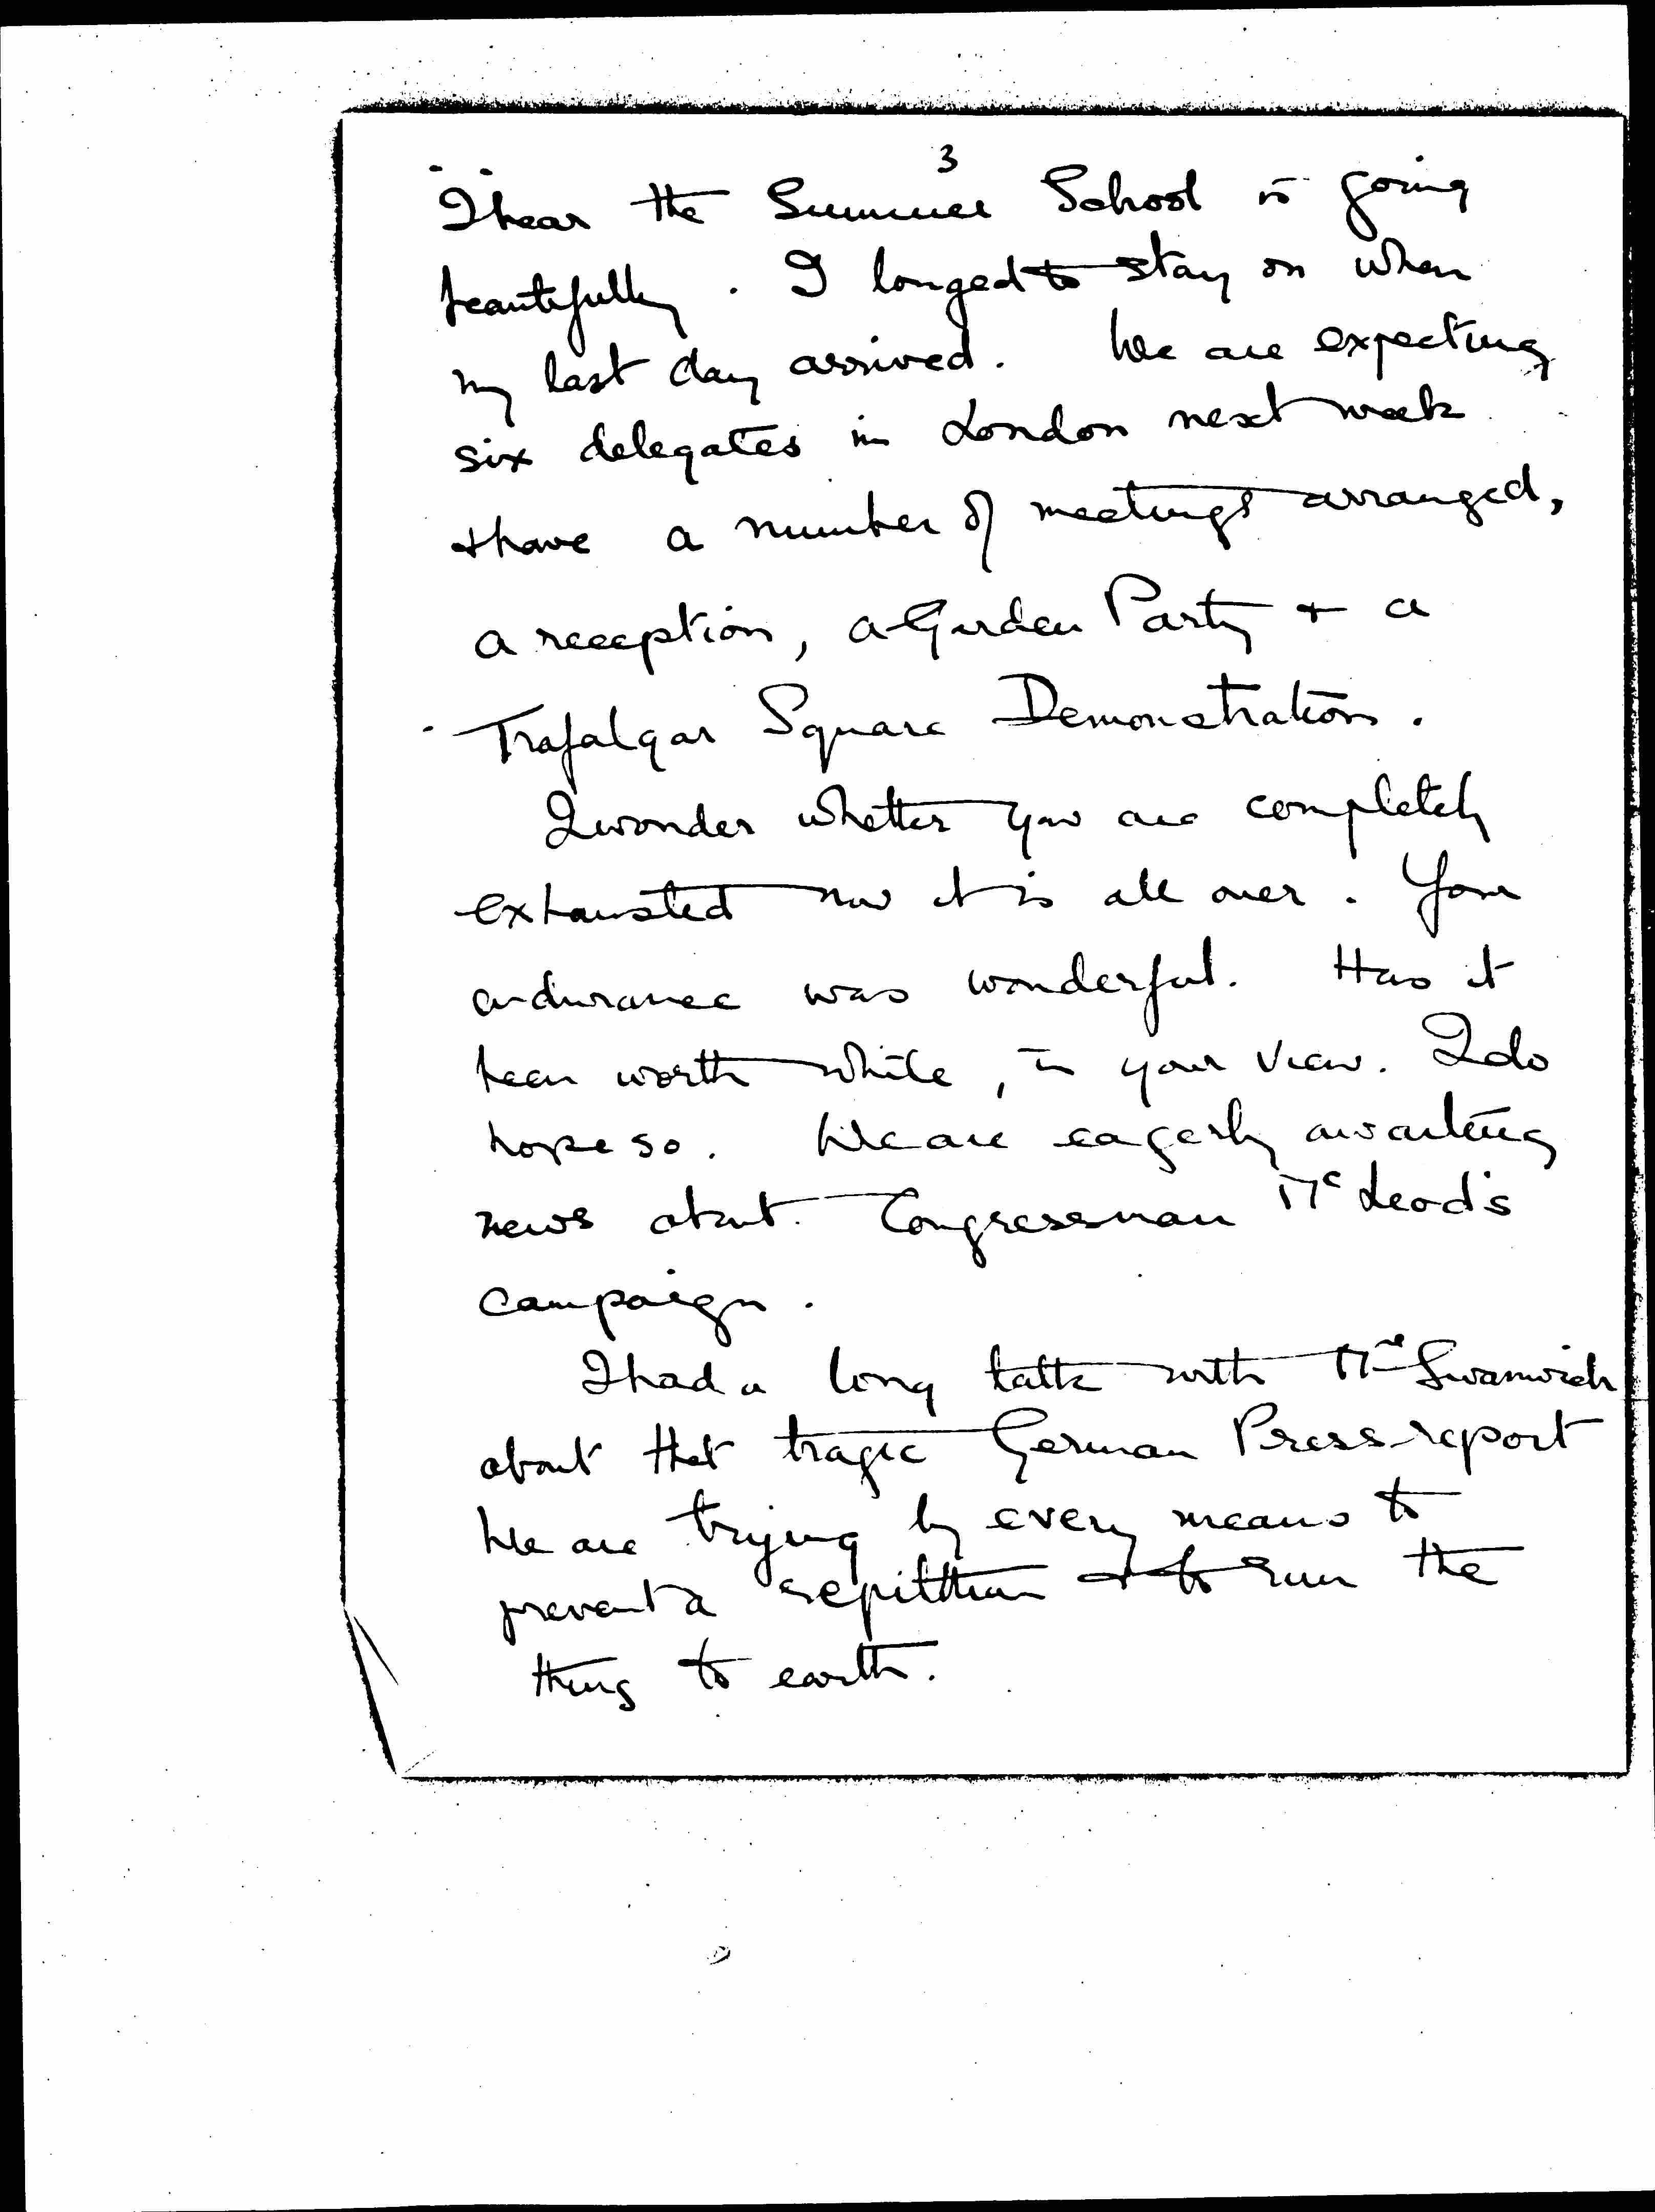 3
I hear the Summer School is going
beautifully. I longed to stay on when
my last day arrived. We are expecting
six delegates in London next week
& have a number of meetings arranged,
a reception, a Garden Party & a
Trafalgar Square Demonstration.
I wonder whether you are completely
exhausted now it is all over. Your
endurance was wonderful. Has it
been worth while, in your view. I do
hope so. We are eagerly awaiting
news about Congressman McLeod's
campaign.
I had a long talk with Mrs Swanwick
about that tragic German Press report
We are trying by every means to
prevent a repitition & to run the
thing to earth.